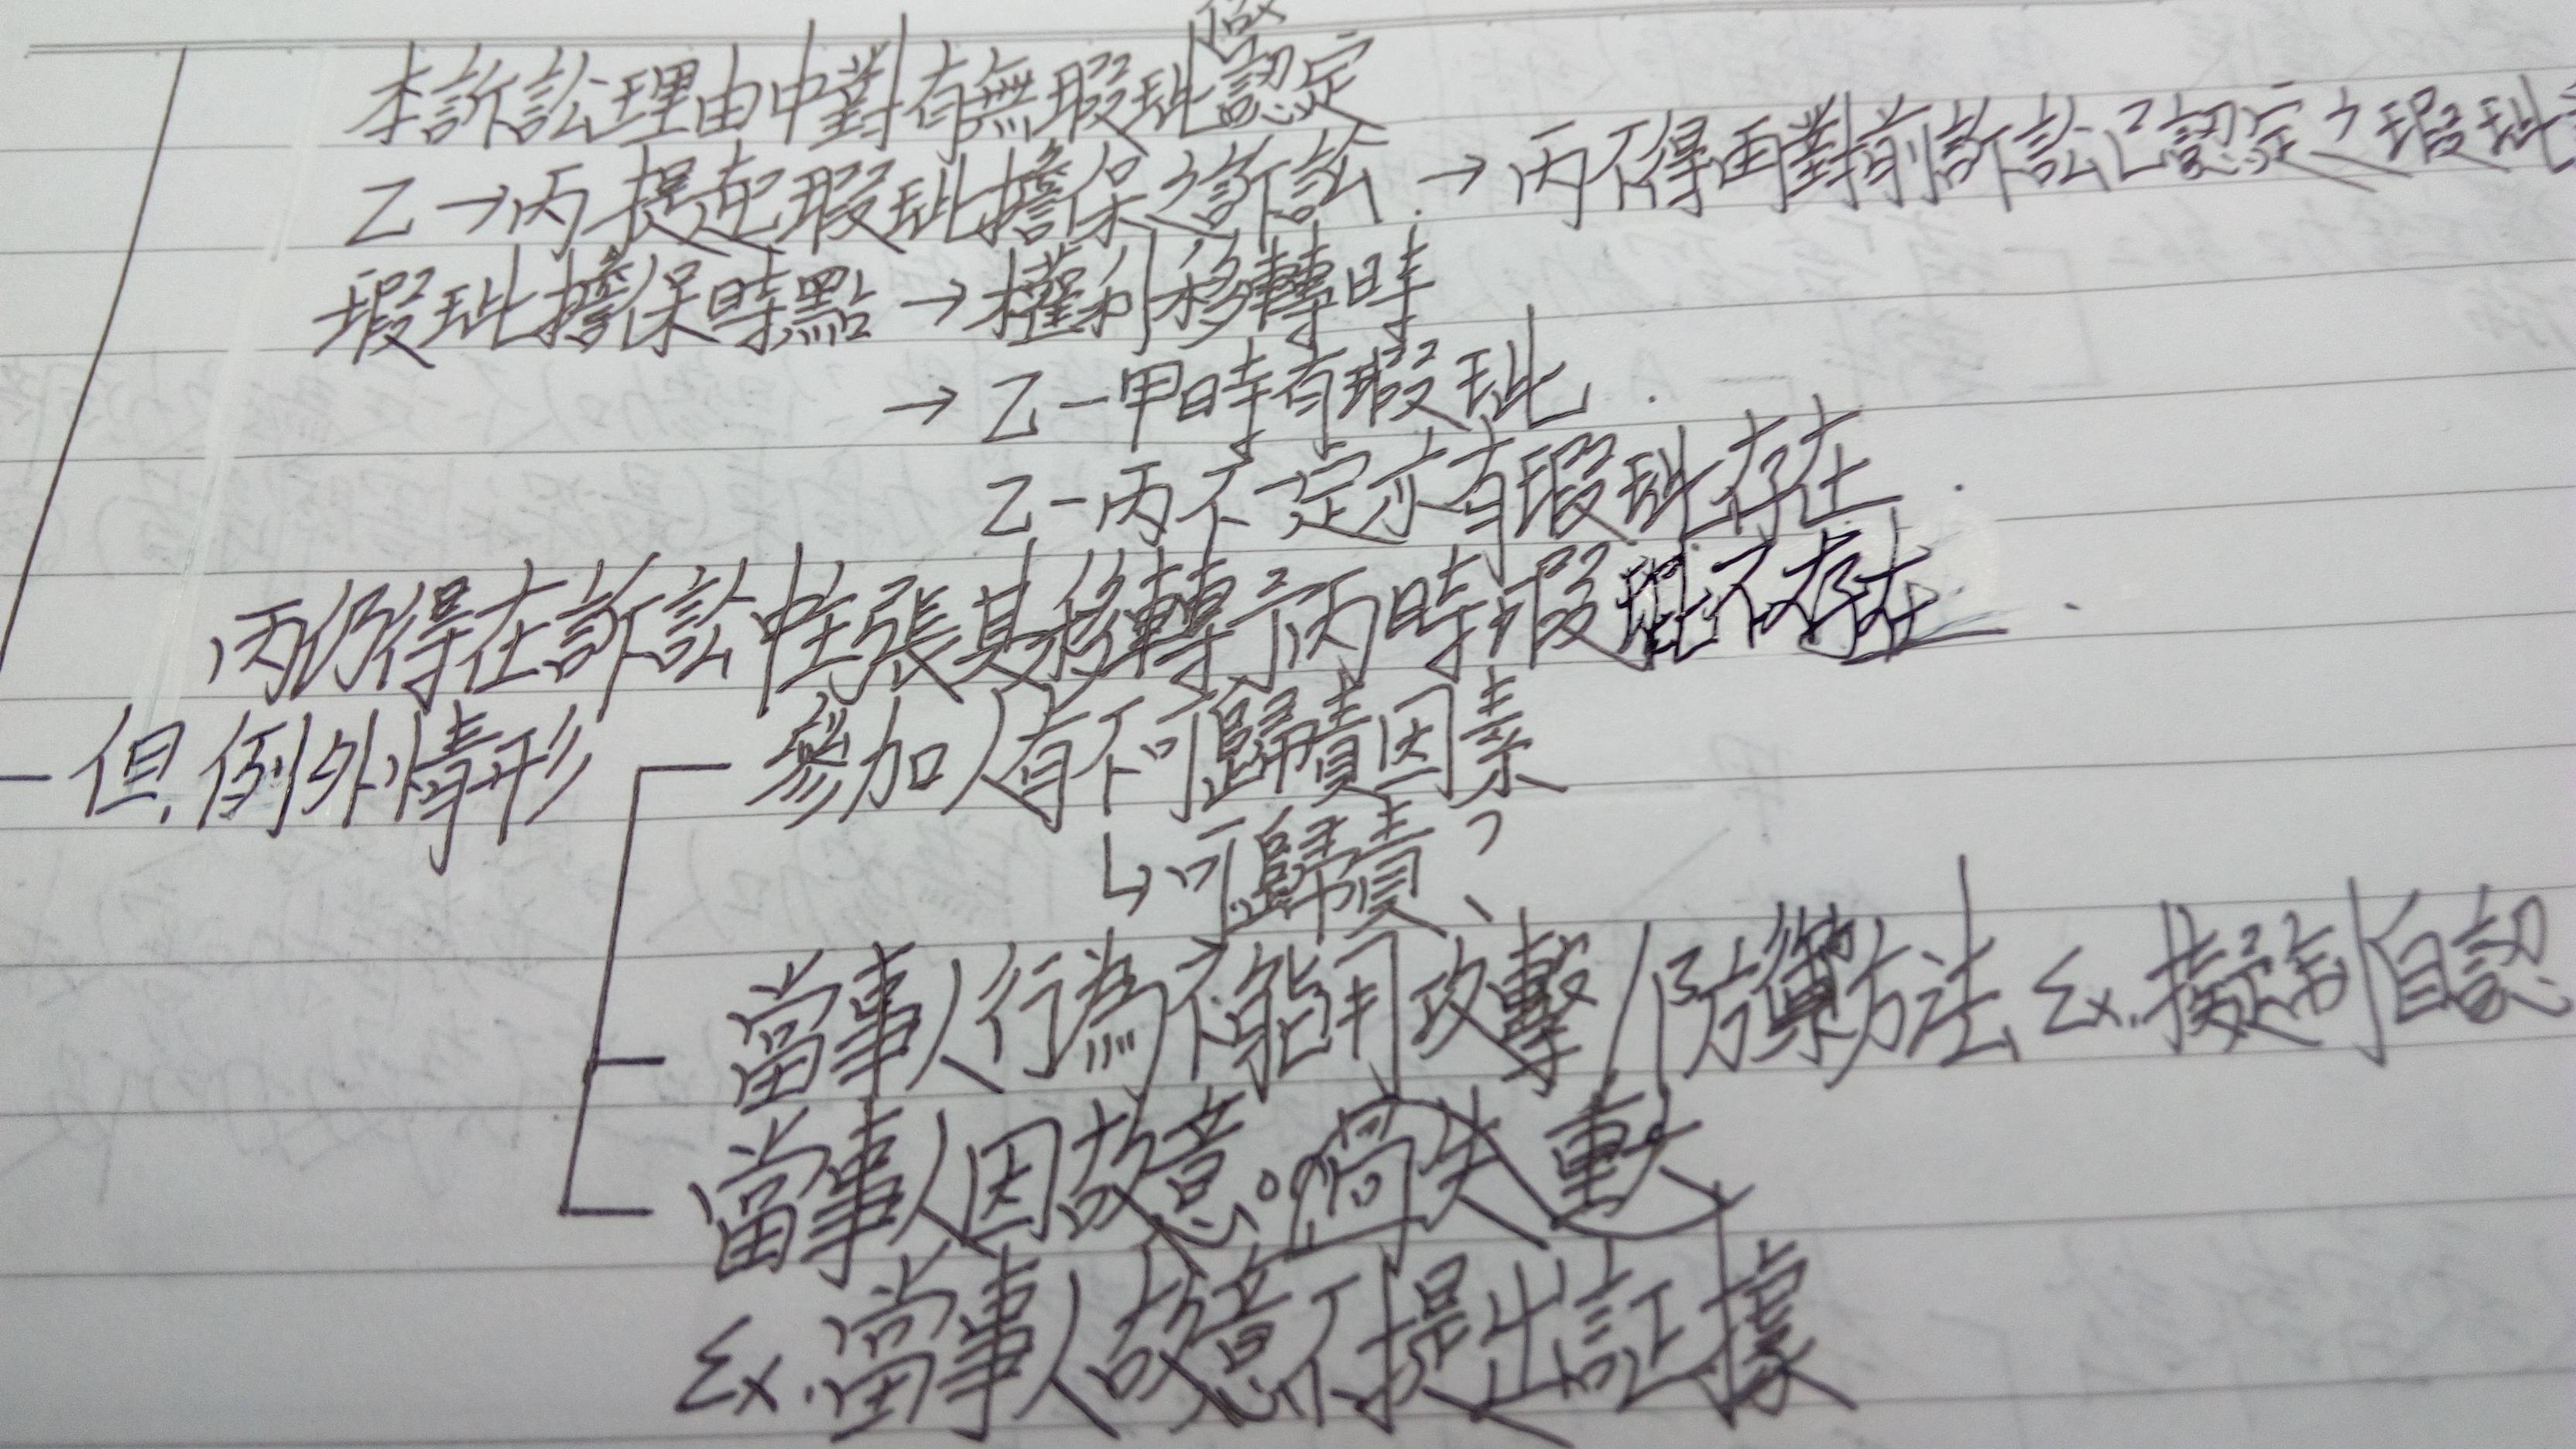 本訴訟理由中對有無瑕玼做認定
乙→丙提起瑕玼擔保之訴訟 → 丙不得再對前訴訟已認定之瑕玼
瑕玼擔保時點 → 權利移轉時
→ 乙－甲時有瑕玼.
乙－丙不一定亦有瑕玼存在.
丙仍得在訴訟中主張其移轉予丙時瑕玼不存在.
－但,例外情形
參加人有不可歸責因素
↳可歸責?
當事人行為不能用攻擊/防禦方法 Ex.擬制自認
當事人因故意。過失 重大
Ex.當事人故意不提出証據